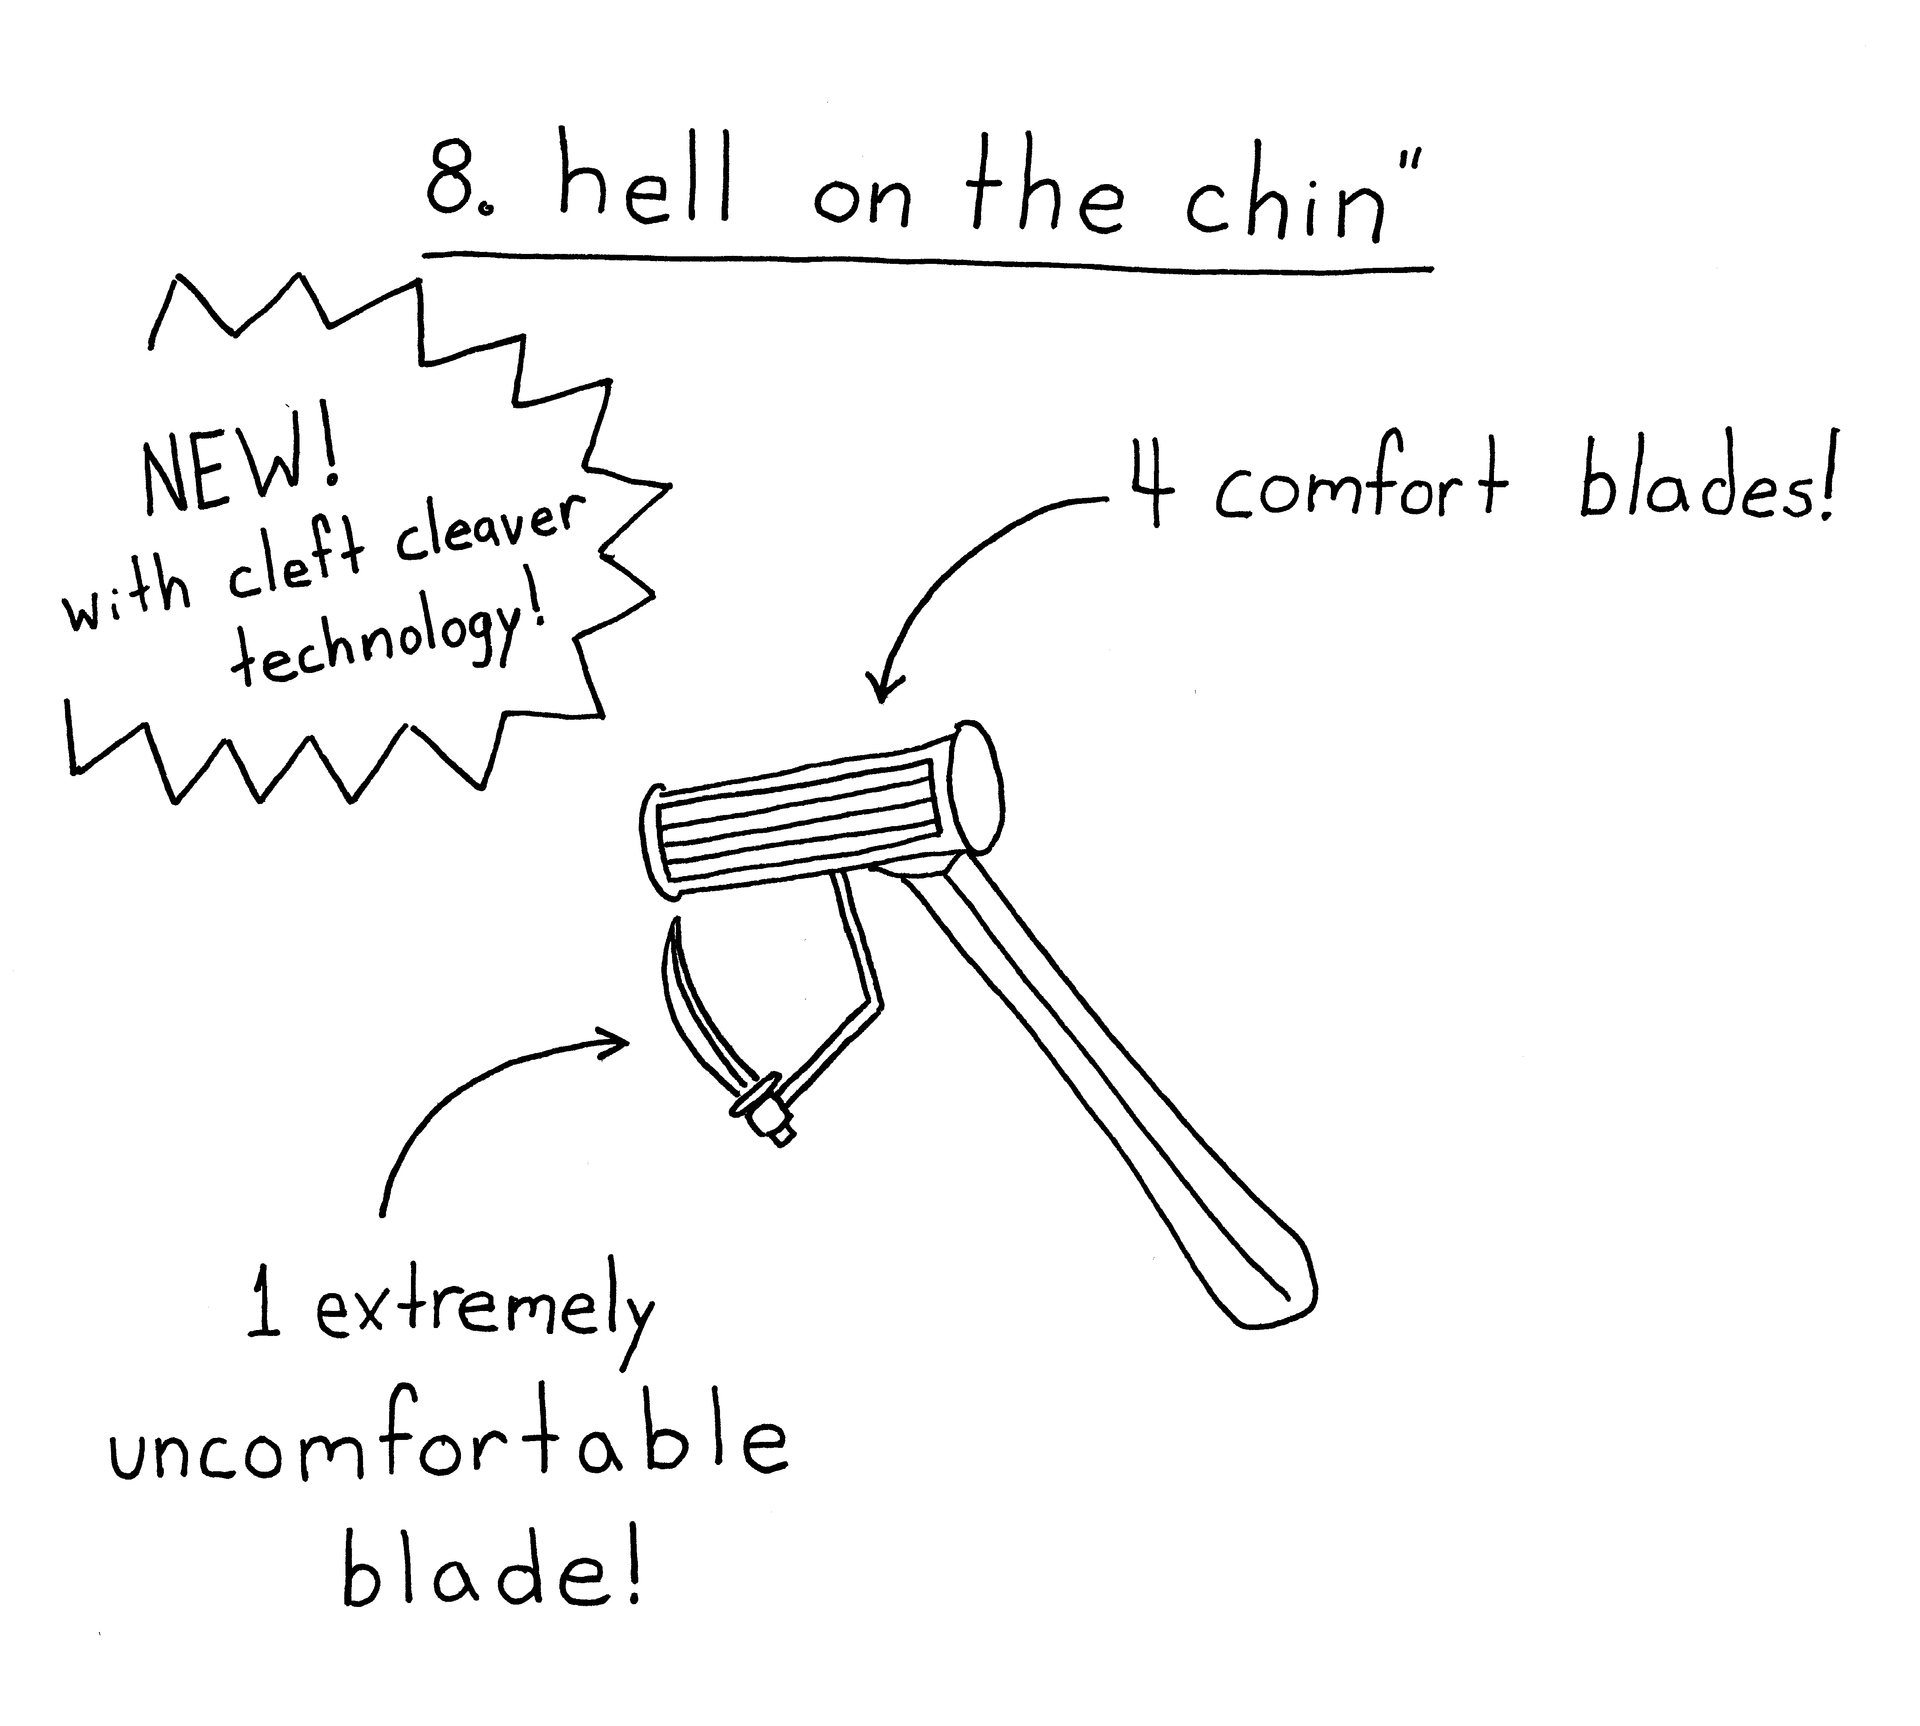 8. hell on the chin"
NEW!
with cleft cleaver
technology!
4 comfort blades!
1 extremely
uncomfortable
blade!